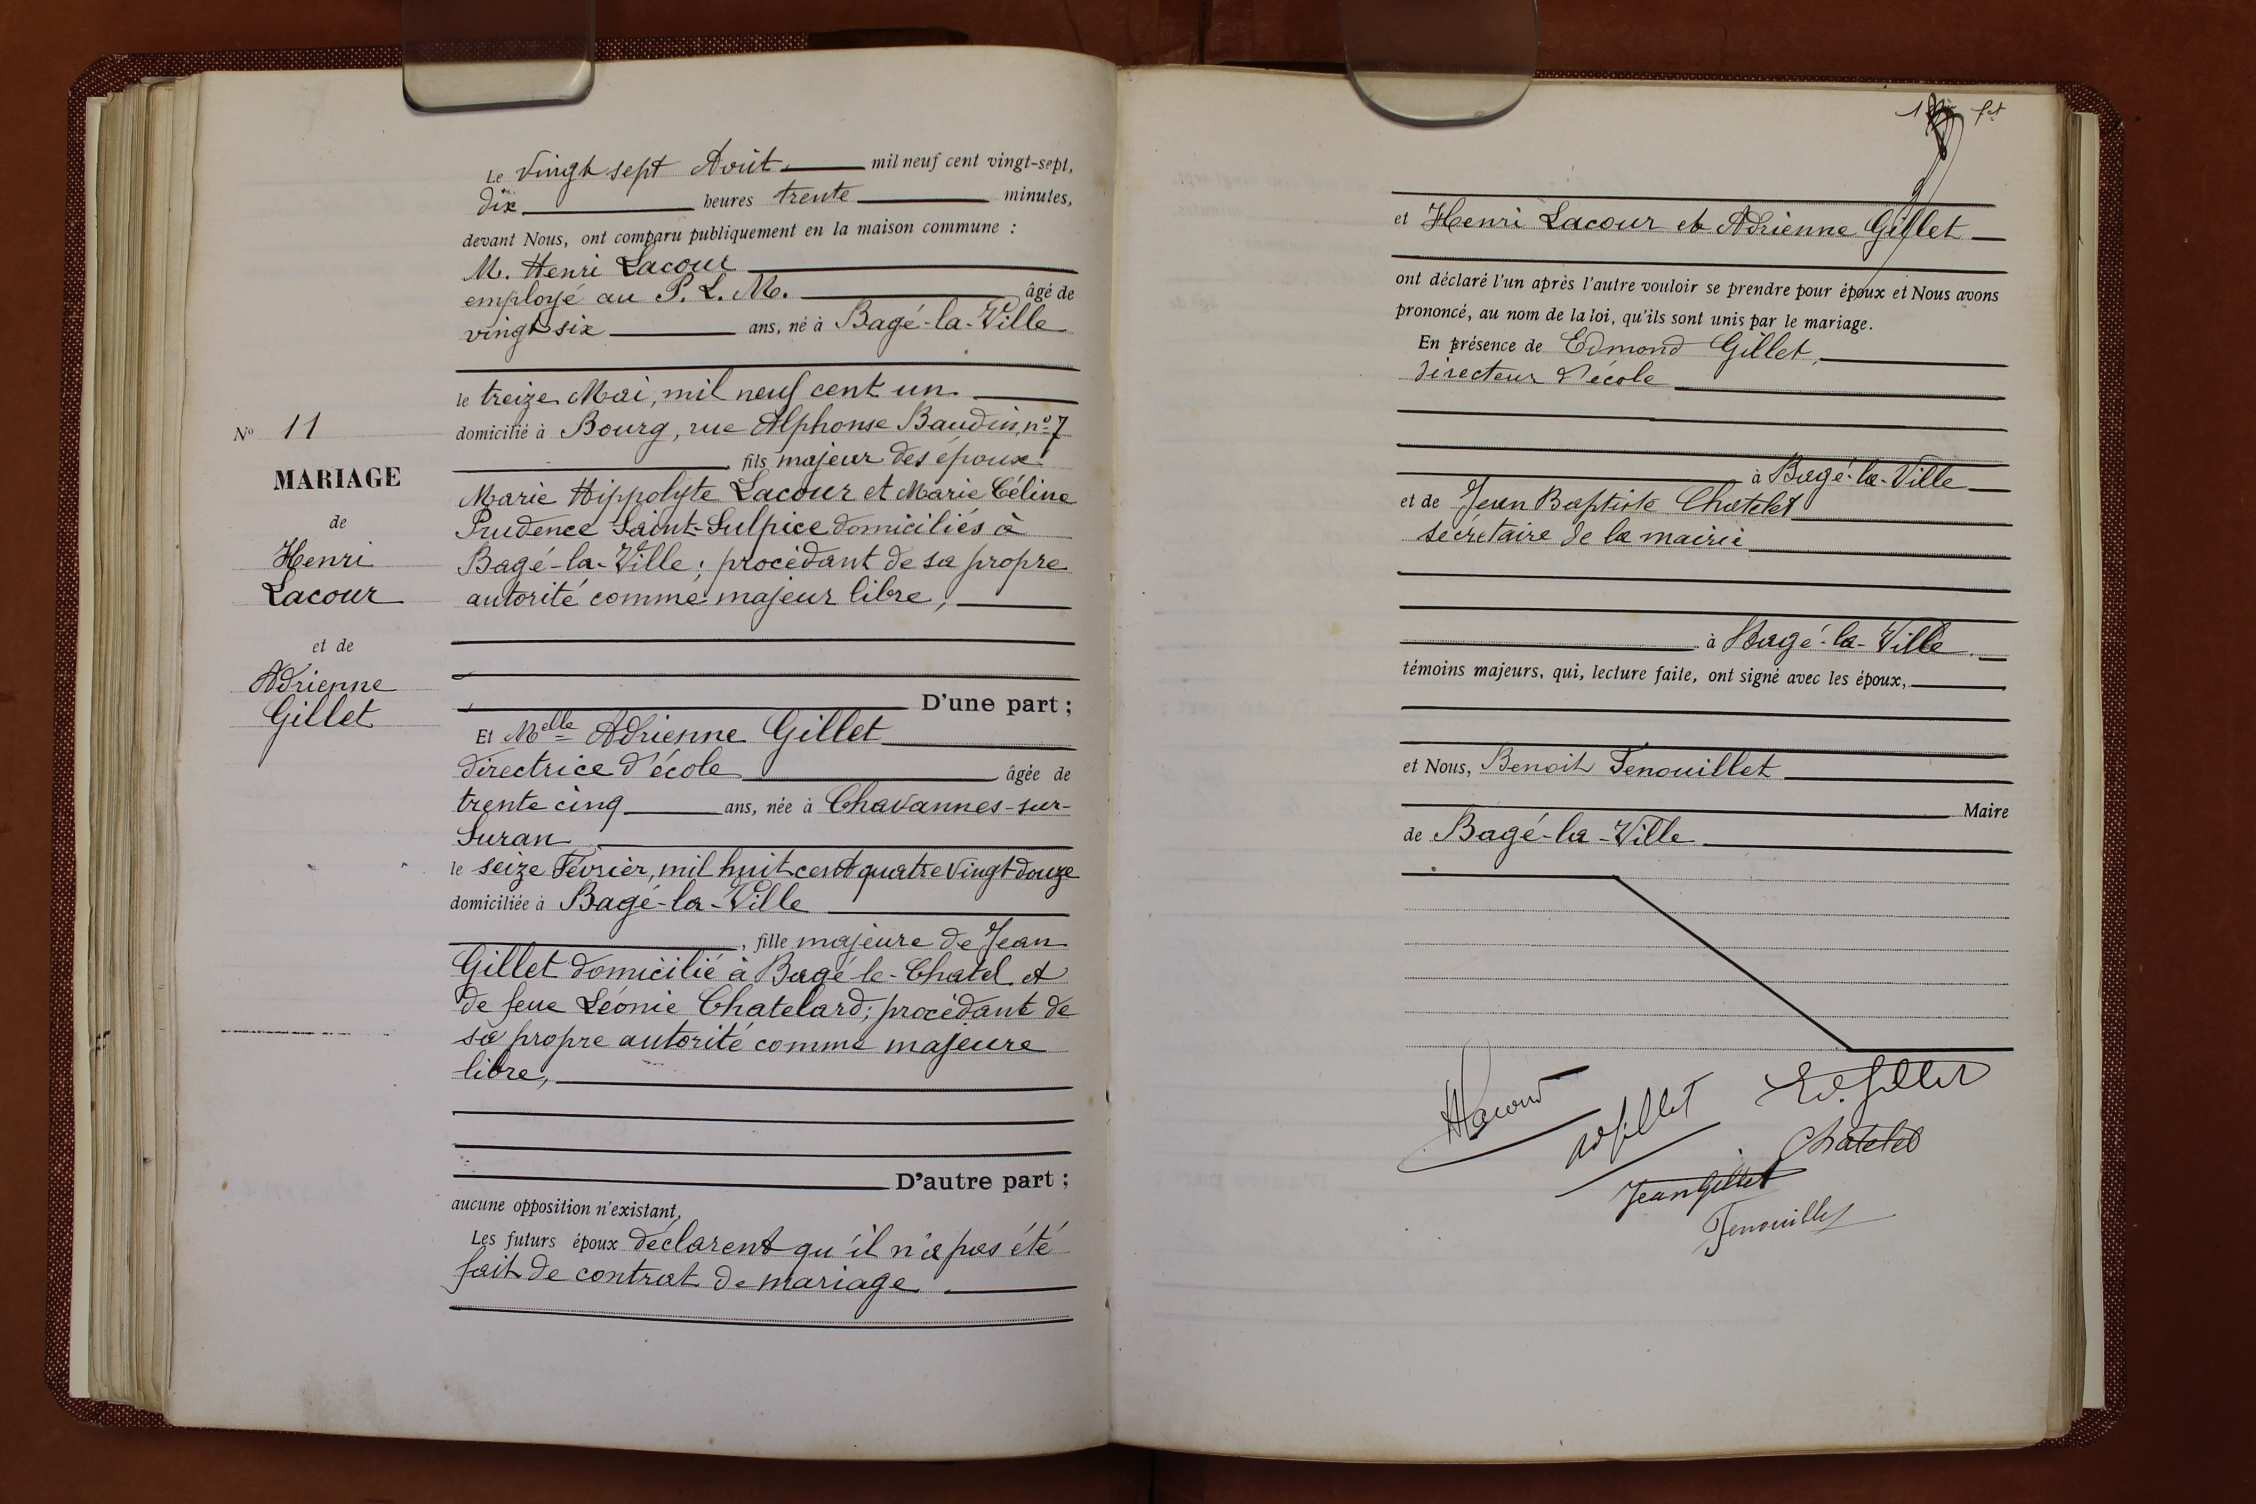 Le vingt sept Août mil neuf cent vingt-sept,
dix heures trente minutes,
devant Nous, ont comparu publiquement en la maison commune :
M. Henri Lacour
employé au P. L. M. âgé de
vingt six ans, né à Bagé-la-Ville
le treize Mai, mil neuf cent un
domicilié à Bourg, rue Alphonse Baudin, nº 7
fils majeur des époux
Marie Hippolyte Lacour et Marie Céline
Prudence Saint-Sulpice domiciliés à
Bagé-la-Ville ; procédant de sa propre
autorité comme majeur libre,
D'une part ;
Nº 11
MARIAGE
de
Henri
Lacour
et de
Adrienne
Gillet
Et Melle Adrienne Gillet
directrice d'école âgée de
trente cinq ans, née à Chavannes-sur-
Suran
le seize Février, mil huit cent quatre vingt douze
domiciliée à Bagé-la-Ville
, fille majeure de Jean
Gillet domicilié à Bagé-le-Chatel et
de feue Léonie Chatelard ; procédant de
sa propre autorité comme majeure
libre,
D'autre part ;
aucune opposition n'existant,
Les futurs époux déclarent qu'il n'a pas été
fait de contrat de mariage
et Henri Lacour et Adrienne Gillet
ont déclaré l'un après l'autre vouloir se prendre pour époux et Nous avons
prononcé, au nom de la loi, qu'ils sont unis par le mariage.
En présence de Edmond Gillet,
directeur d'école
à Bagé-la-Ville
et de Jean Baptiste Chatelet
secrétaire de la mairie
à Bagé-la-Ville
témoins majeurs, qui, lecture faite, ont signé avec les époux,
et Nous, Benoit Fenouillet
Maire
de Bagé-la-Ville
HLacour
Ad Gillet
Ed. Gillet
Chatelet
Jean Gillet
Fenouillet